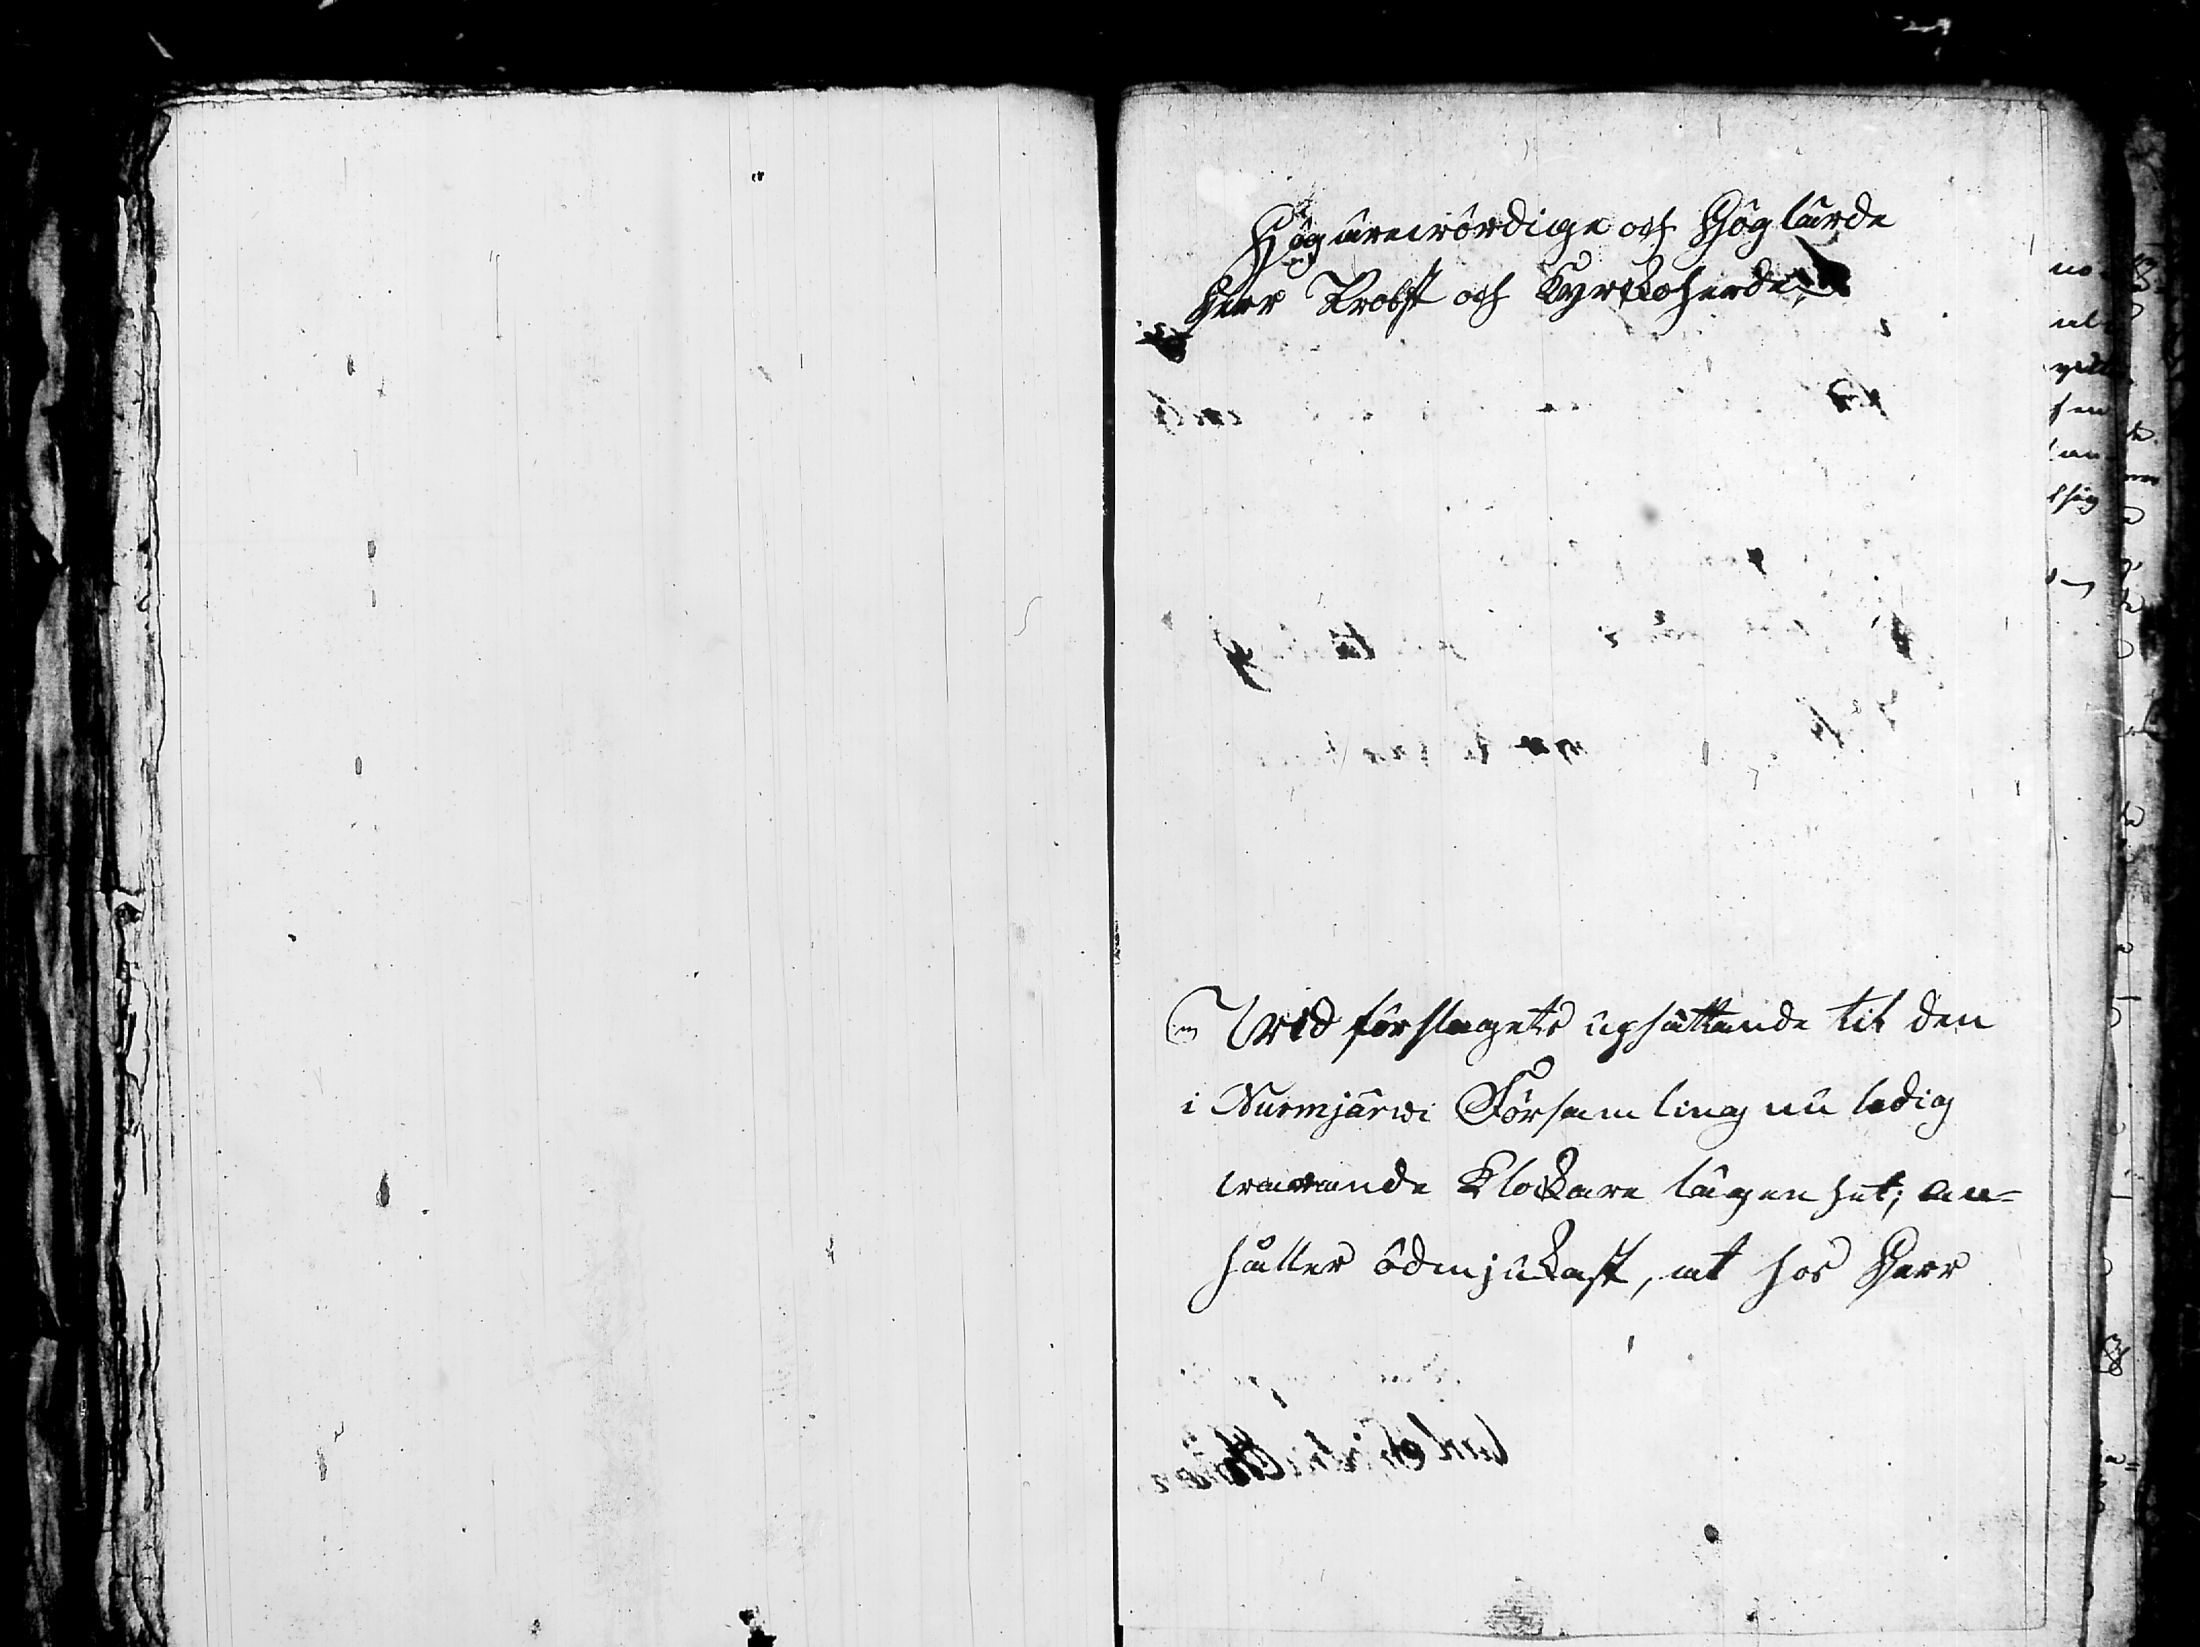 Högärewördige och Höglärde
Herr Probst och Kyrkoherde
Wid förslagets upsättande til den
i Nurmjärwi Församling nu ledig
warande Klockare lägenhet; an-
håller ödmjukast, at hos Herr